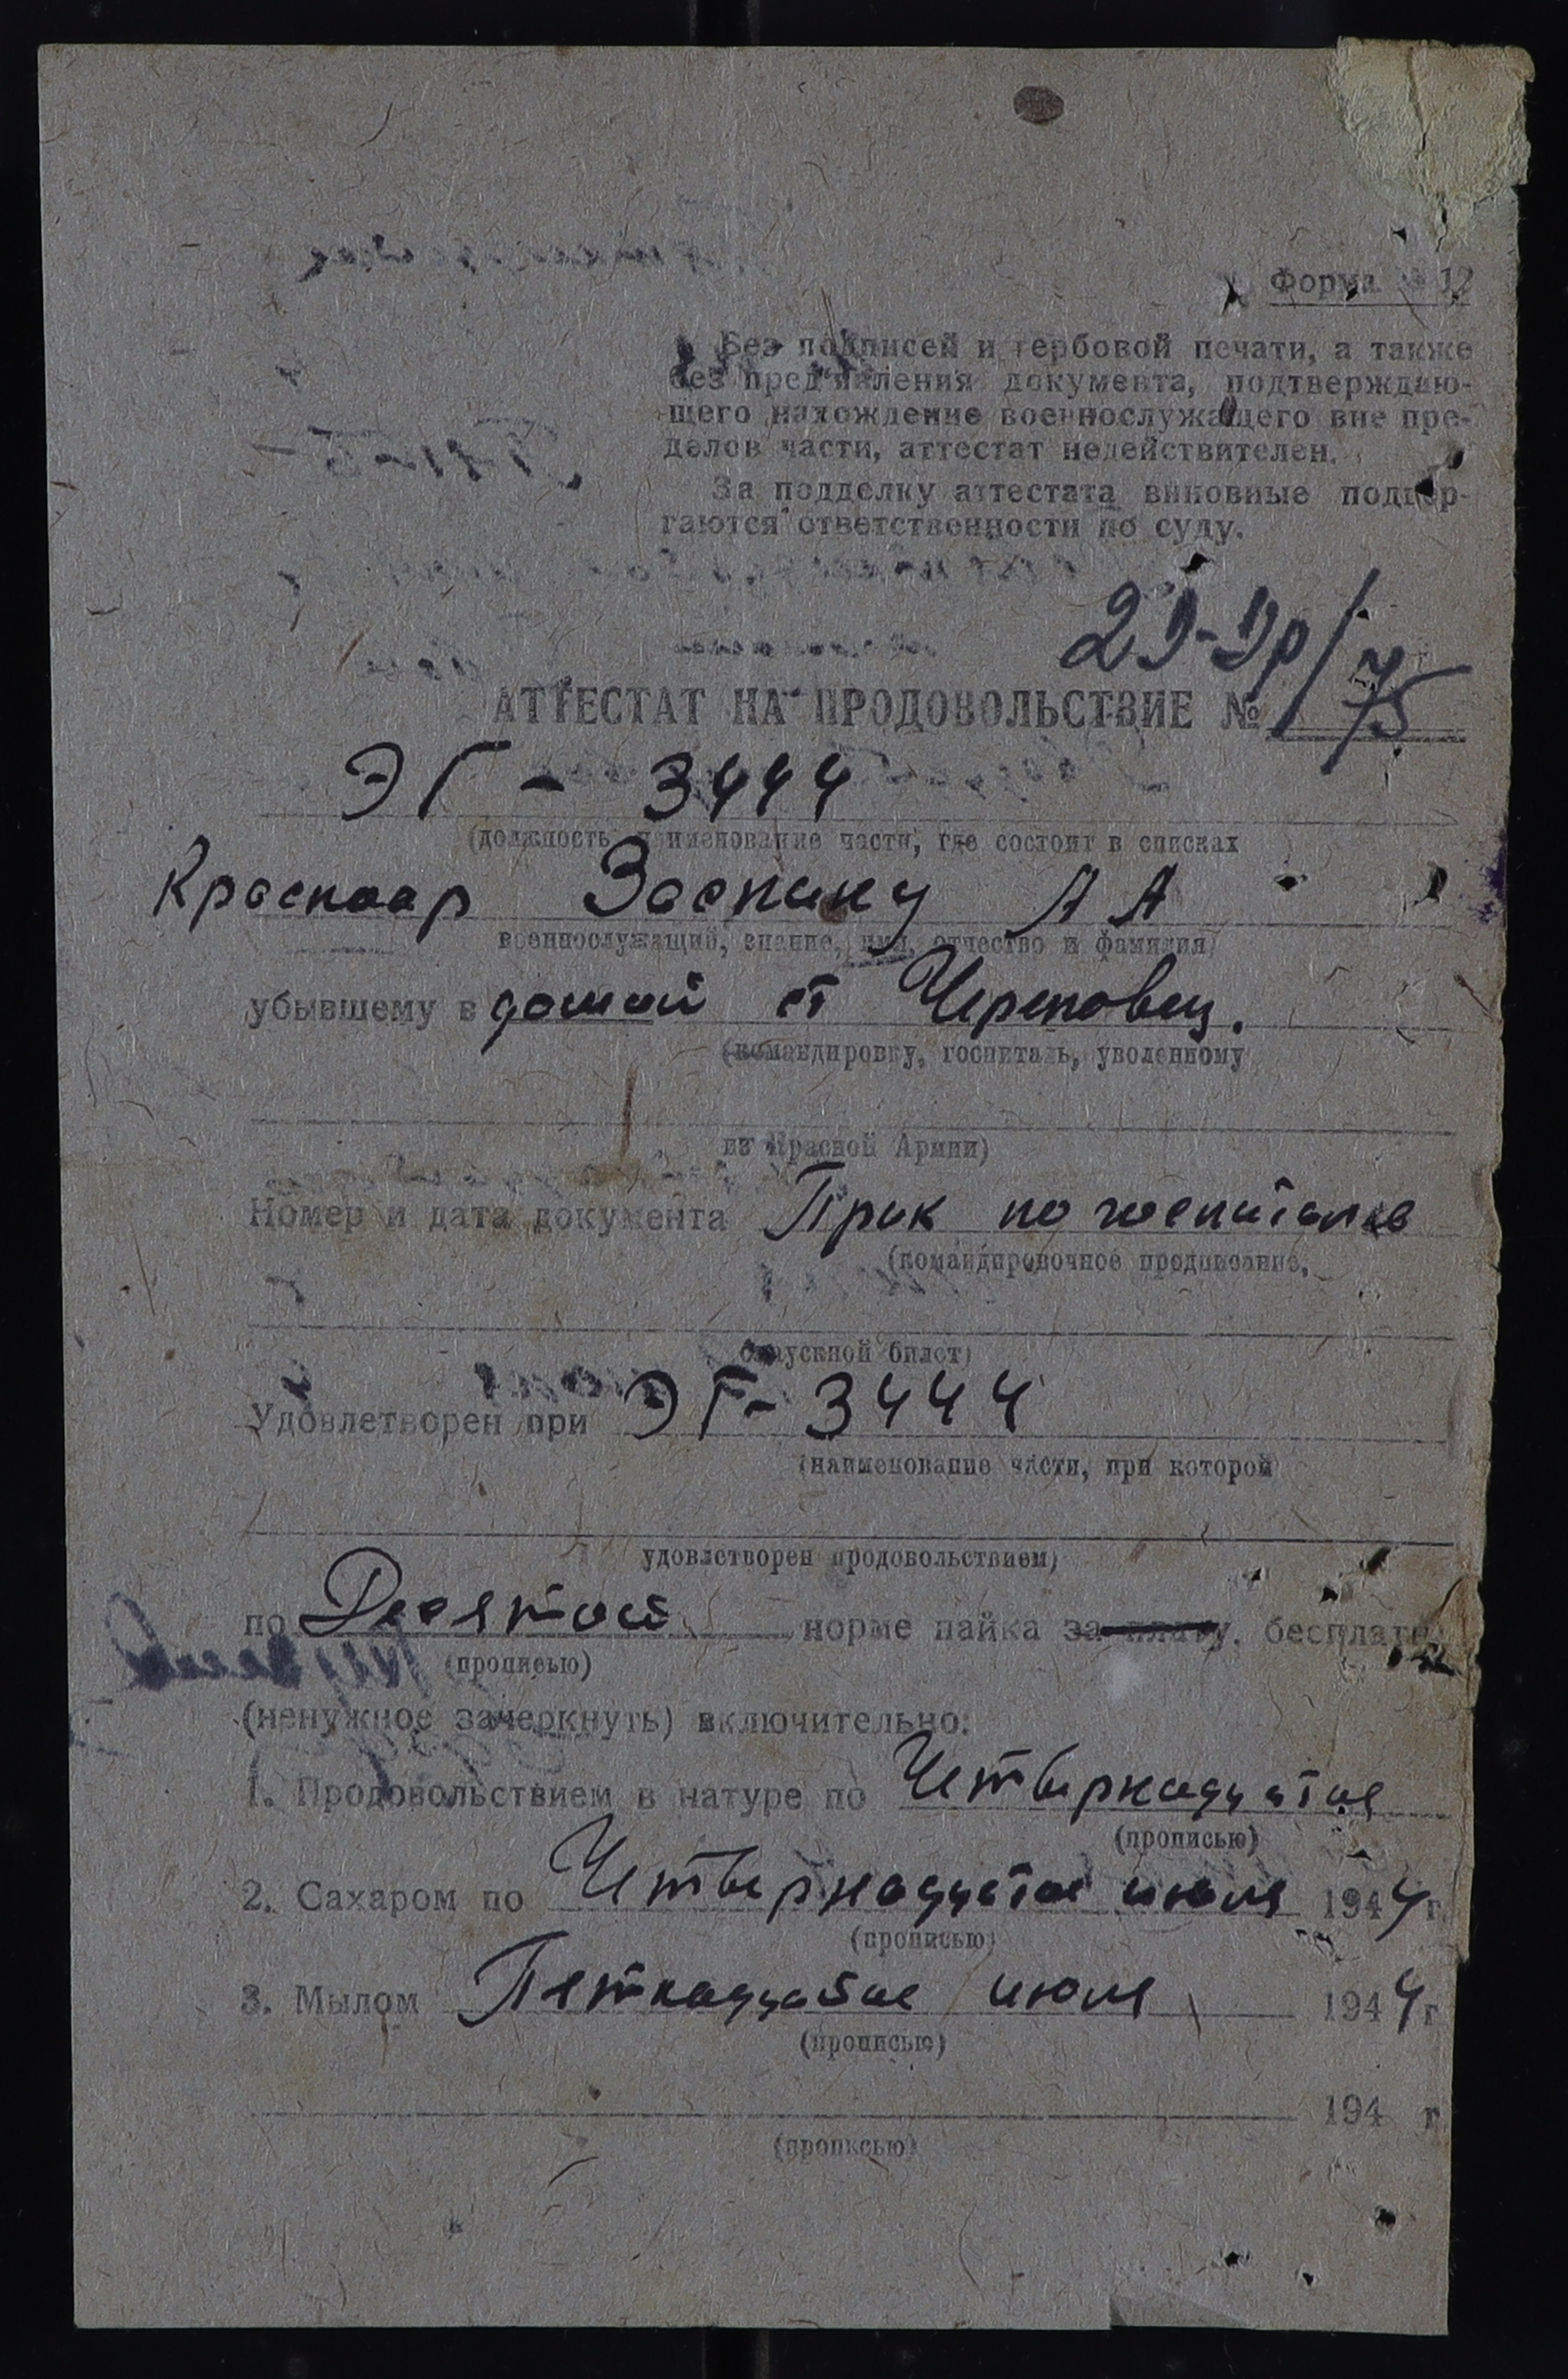 Форма № 12
Без подписей и гербовой печати, а также
без пред'явления документа, подтверждаю-
щего нахождение военнослужащего вне пре-
делов части, аттестат недействителен.
За подделку аттестата виновные подвер-
гаются ответственности по суду.
АТТЕСТАТ НА ПРОДОВОЛЬСТВИЕ №
ЭГ - 3444
(должность, наименование части, где состоит в списках
Красноар Заспину А А
военнослужащий, звание, имя, отчество и фамилия)
убывшему в домой ст Череповец.
(командировку, госпиталь, уволенному
из Красной Армии)
Номер и дата документа Прик по госпиталю
(командировочное предписание,
отпускной билет)
Удовлетворен при ЭГ- 3444
(наименование части, при которой
удовлетворен продовольствием)
по Десятой норме пайка за плату, бесплатно
(прописью)
(ненужное зачеркнуть) включительно:
1. Продовольствием в натуре по Четырнадцатое
(прописью)
2. Сахаром по Четырнадцатое июля 1944 г
(прописью)
3. Мылом Пятнадцатое июля 1944 г
(прописью)
194 г
(прописью)